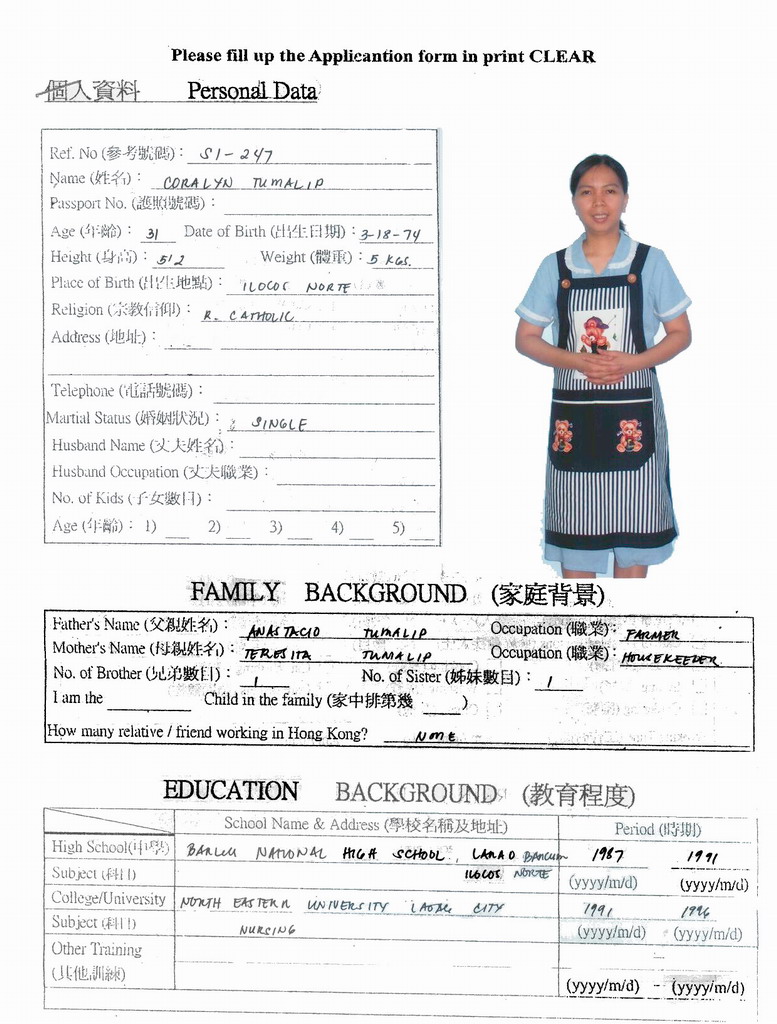 Please fill up the Applicantion form in print CLEAR
個人資料 Personal Data
Ref. No (參考號碼): S1-247
Name (姓名): CORALYN TUMALIP
Passport No. (護照號碼):
Age (年齡): 31 Date of Birth (出生日期): 3-18-74
Height (身高): 512 Weight (體重): 5 KGS.
Place of Birth (出生地點): ILOCOS NORTE
Religion (宗教信仰): R. CATHOLIC
Address (地址):
Telephone (電話號碼):
Martial Status (婚姻狀況): SINGLE
Husband Name (丈夫姓名):
Husband Occupation (丈夫職業):
No. of Kids (子女數目):
Age (年齡): 1) 2) 3) 4) 5)
FAMILY BACKGROUND (家庭背景)
Father's Name (父親姓名): ANASTACIO TUMALIP Occupation (職業): FARMER
Mother's Name (母親姓名): TERESITA TUMALIP Occupation (職業): HOUSEKEEPER
No. of Brother (兄弟數目): 1 No. of Sister (姊妹數目): 1
I am the Child in the family (家中排第幾 )
How many relative / friend working in Hong Kong? NONE
EDUCATION BACKGROUND (教育程度)
School Name & Address (學校名稱及地址) Period (時期)
High School(中學) NATIONAL HIGH SCHOOL, 1987 1991
Subject (科目) ILOCOS NORTE (yyyy/m/d) (yyyy/m/d)
College/University NORTH EASTERN UNIVERSITY LAOAG CITY 1991 1996
Subject (科目) NURSING (yyyy/m/d) (yyyy/m/d)
Other Training
(其他訓練) (yyyy/m/d) - (yyyy/m/d)